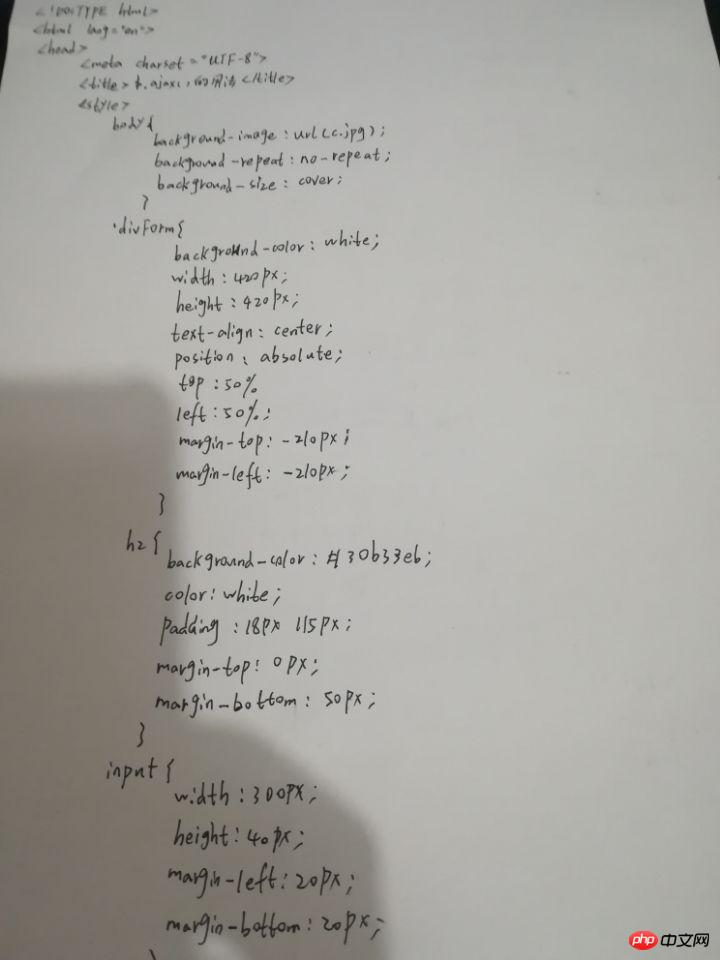 <!DOCTYPE html>
<html lang="en">
<head>
<meta charset="UTF-8">
<title>$.ajax(,的用法</title>
<style>
body{
background-image:url(c.jpg);
background-repeat:no-repeat;
background-size:cover;
}
.divForm{
background-color:white;
width:420px;
height:420px;
text-align:center;
position:absolute;
top:50%
left:50%;
margin-top:-210px;
margin-left:-210px;
}
h2{
background-color:#30b33eb;
color:white;
padding:18px 115px;
margin-top:0px;
margin-bottom:50px;
}
input{
width:300px;
height:40px;
margin-left:20px;
margin-bottom:20px;
}
php中文网